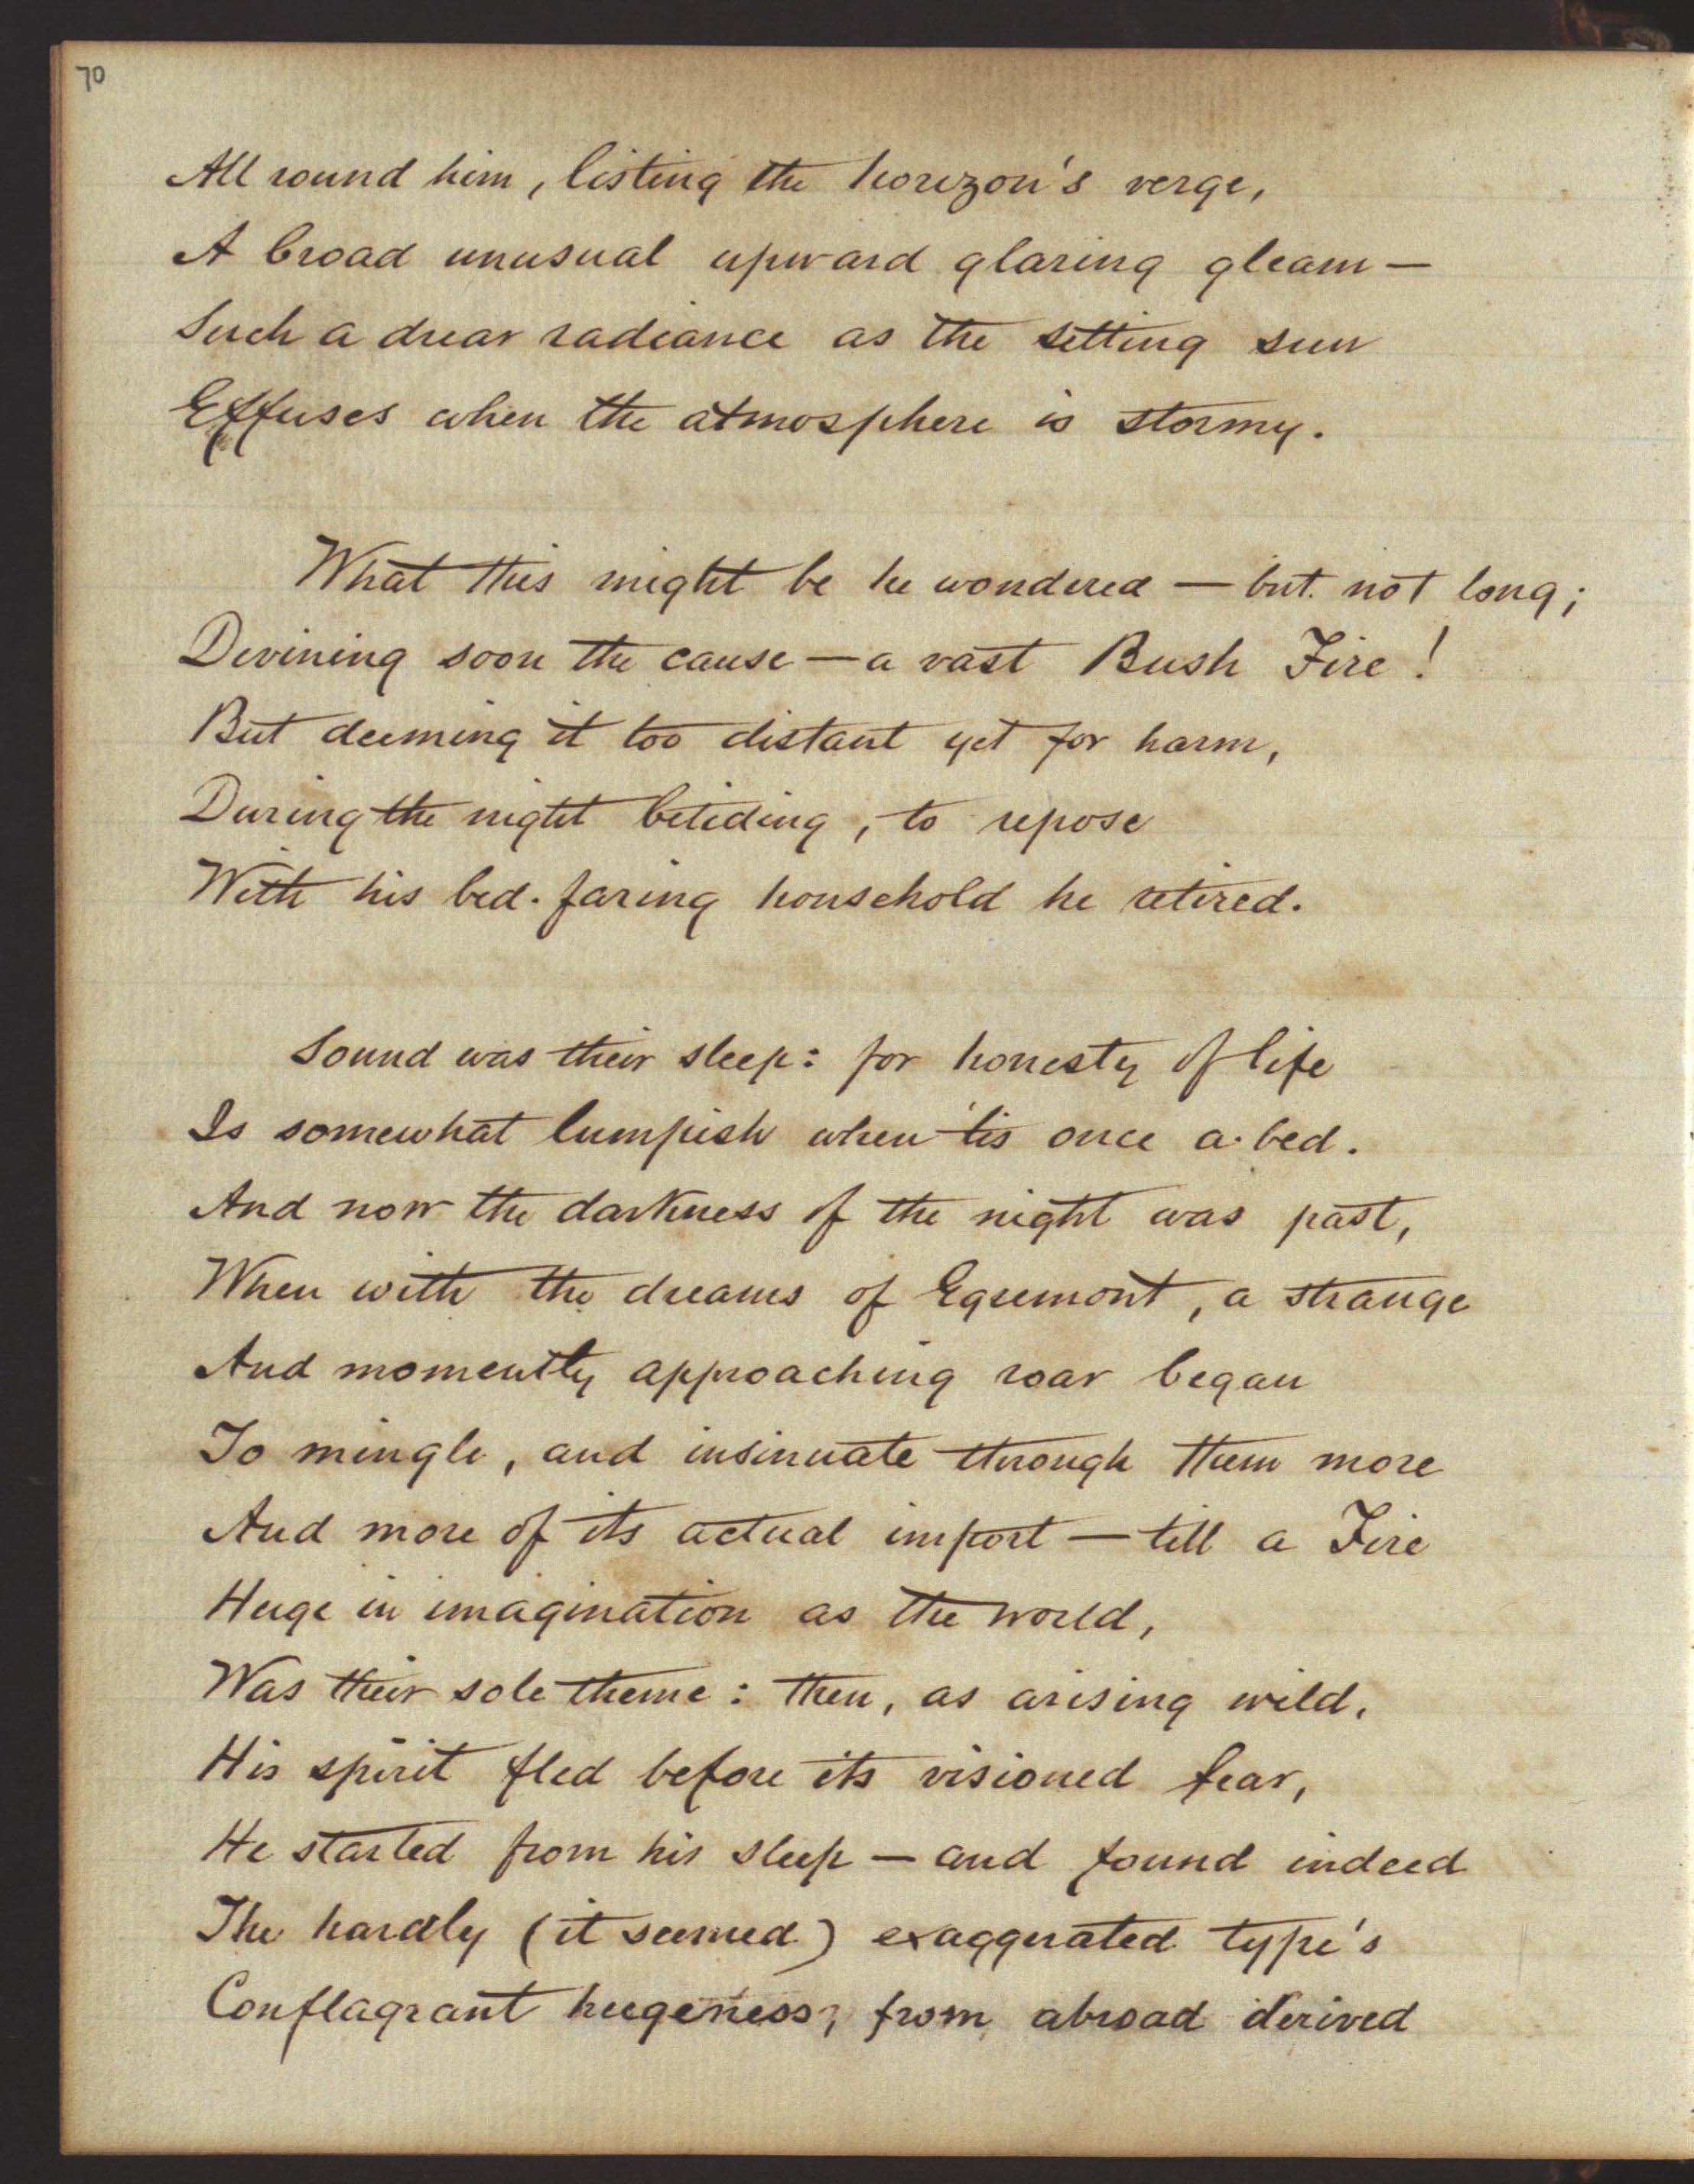 70
All round him, listing the horizon's verge,
A broad unusual upward glaring gleam —
Such a drear radiance as the setting sun
Effuses when the atmosphere is stormy.
What this might be he wondered — but not long;
Divining soon the cause — a vast Bush Fire!
But deeming it too distant yet for harm,
During the night betiding, to repose
With his bed-faring household he retired.
Sound was their sleep: for honesty of life
Is somewhat lumpish when 'tis once a-bed.
And now the darkness of the night was past,
When with the dreams of Egremont, a strange
And momently approaching roar began
To mingle, and insinuate through them more
And more of its actual import — till a Fire
Huge in imagination as the world,
Was their sole theme: then, as arising wild,
His spirit fled before its visioned fear,
He started from his sleep — and found indeed
The hardly (it seemed) exaggerated type's
Conflagrant hugeness, from abroad derived